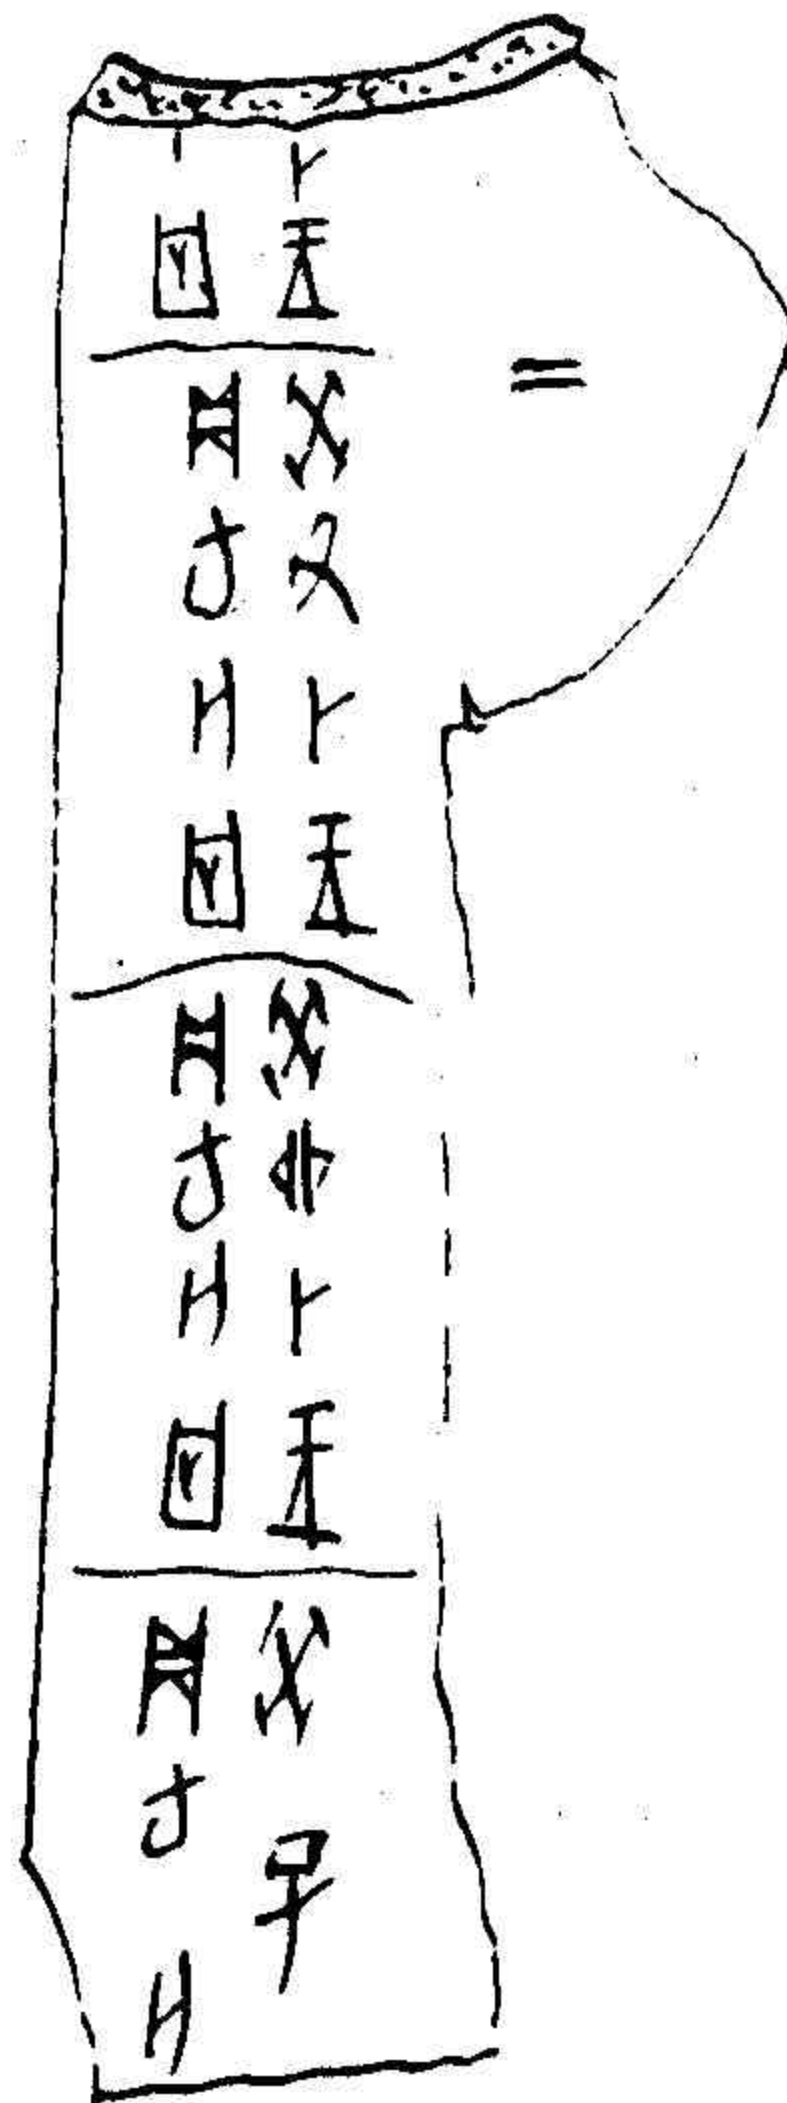 卜王
囚
癸丑卜王
貞旬亡囚
癸卯卜王
貞旬亡囚
癸巳
貞旬亡
二